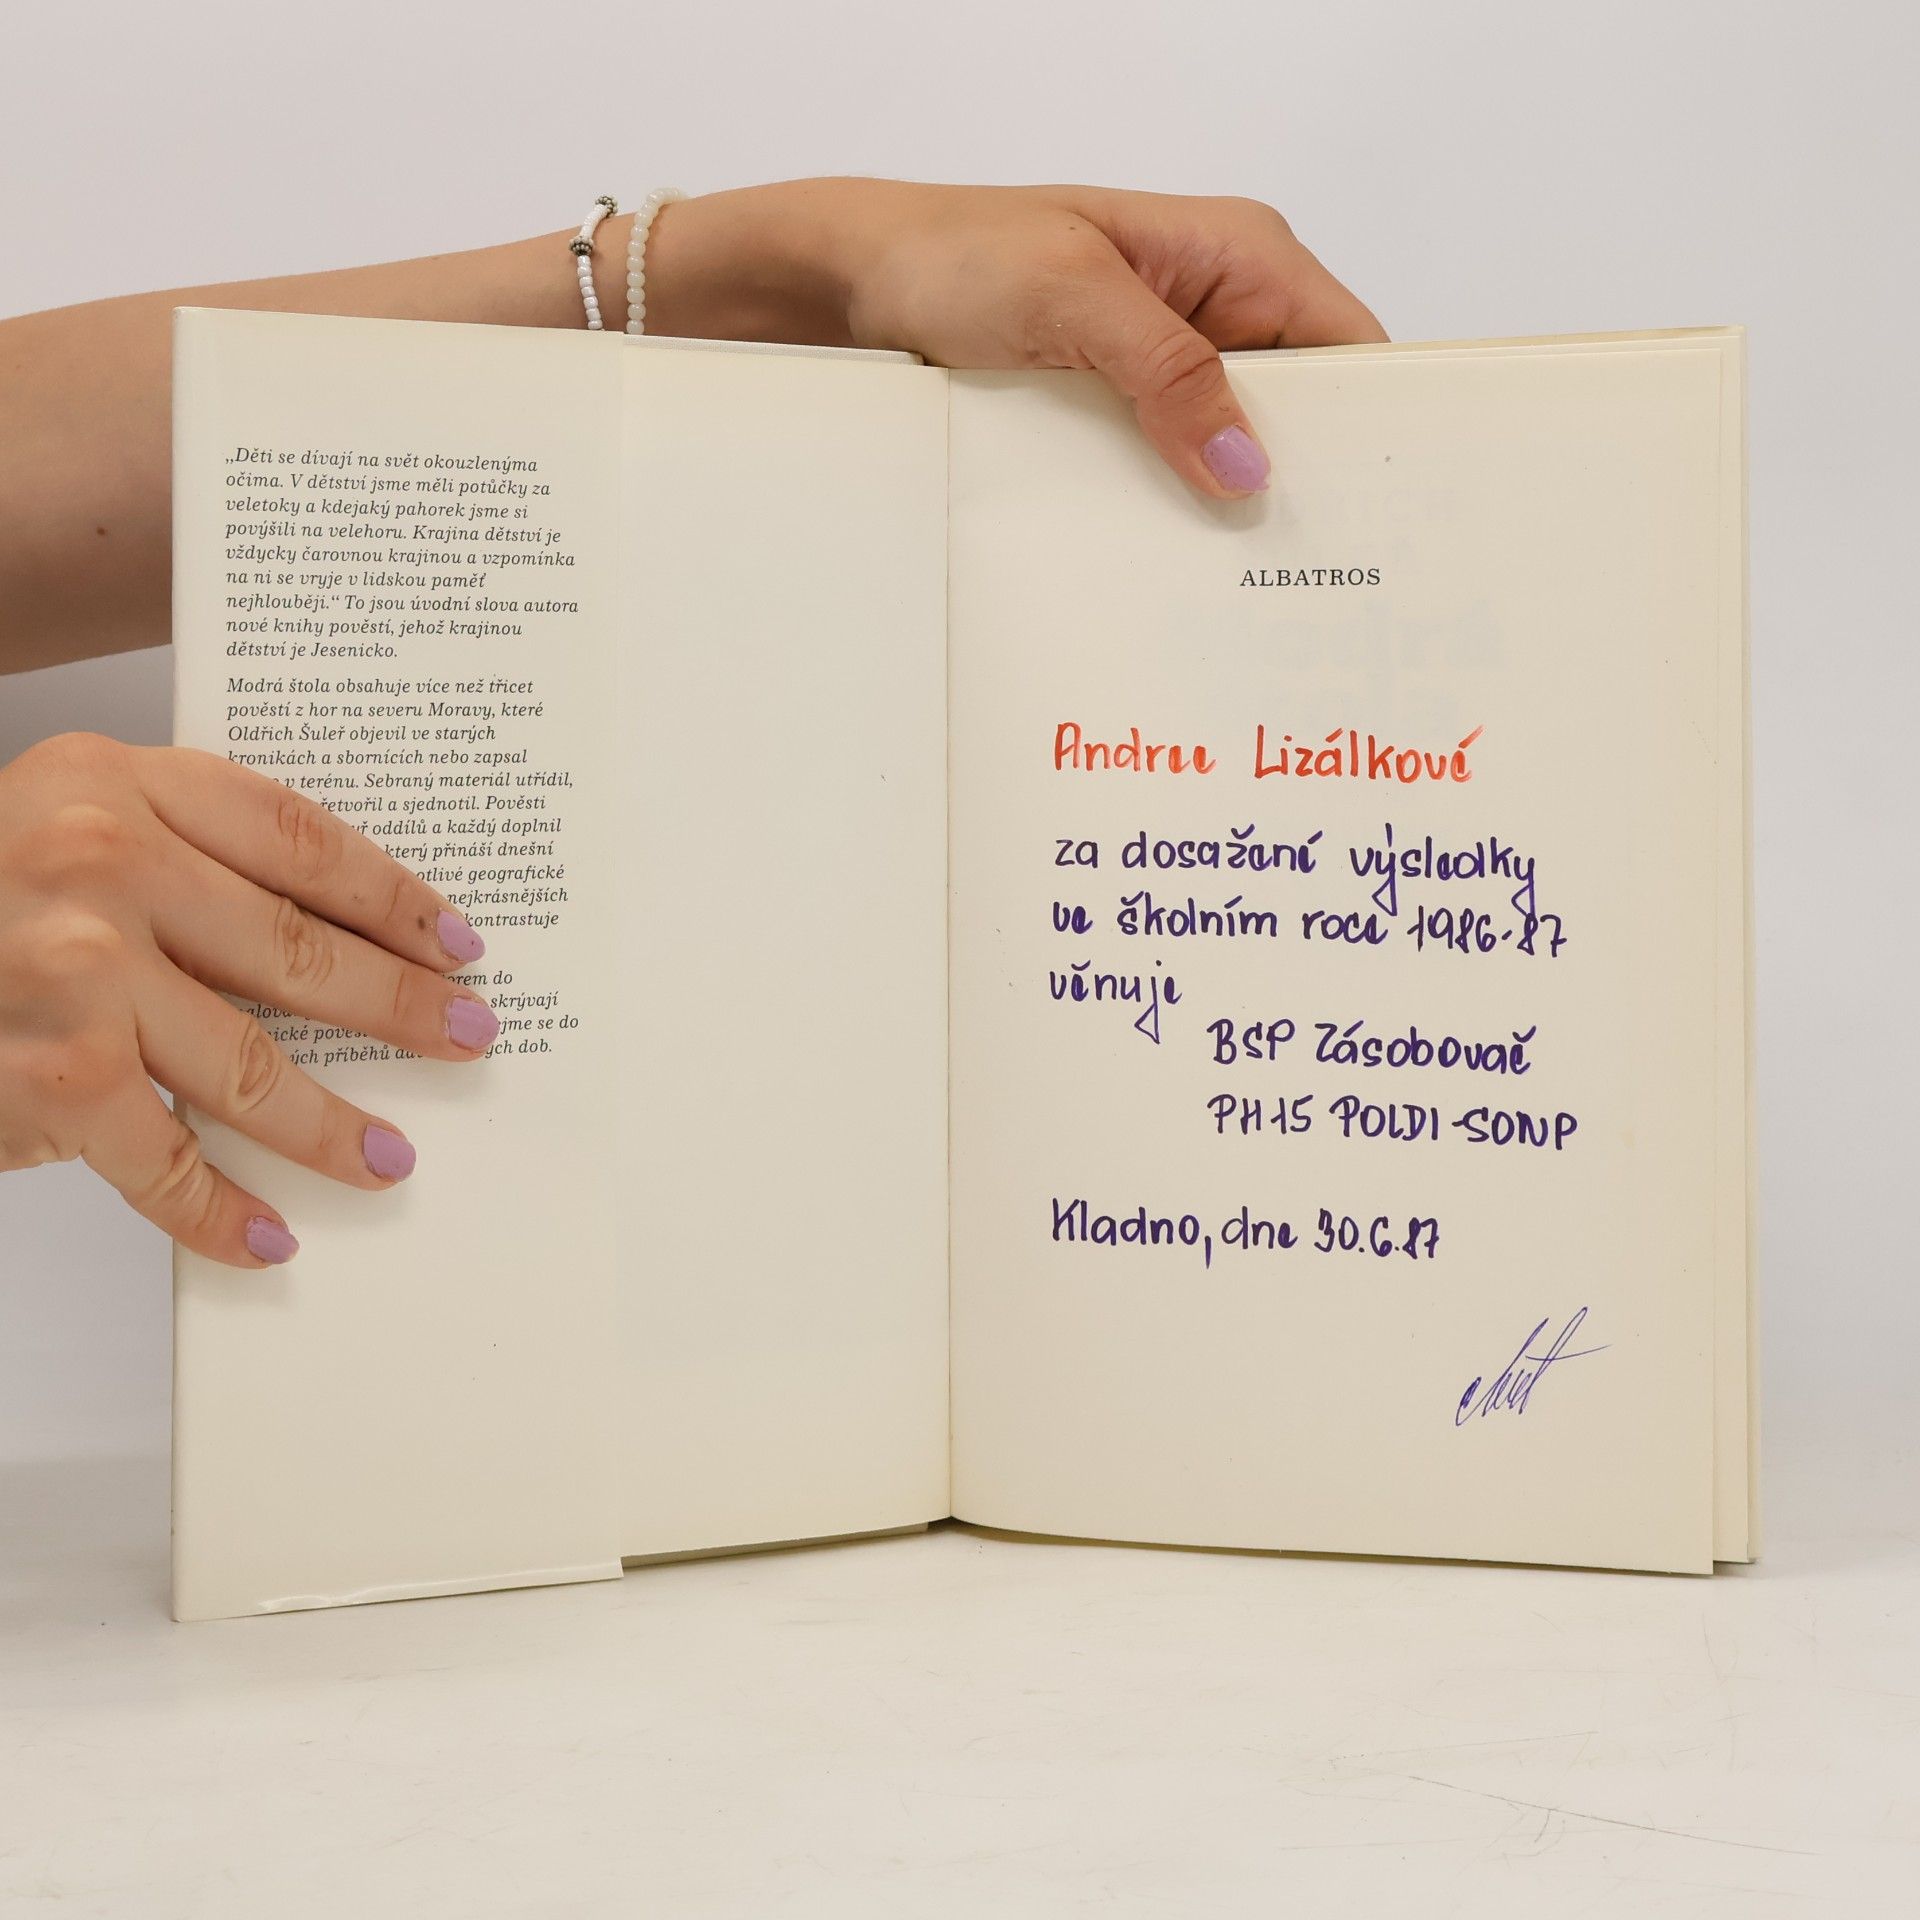 „Děti se dívají na svět okouzlenýma
očima. V dětství jsme měli potůčky za
veletoky a kdejaký pahorek jsme si
povýšili na velehoru. Krajina dětství je
vždycky čarovnou krajinou a vzpomínka
na ni se vryje v lidskou paměť
nejhlouběji.“ To jsou úvodní slova autora
nové knihy pověstí, jehož krajinou
dětství je Jesenicko.
Modrá štola obsahuje více než třicet
pověstí z hor na severu Moravy, které
Oldřich Šuleř objevil ve starých
kronikách a sbornících nebo zapsal
v terénu. Sebraný materiál utřídil,
a sjednotil. Pověsti
oddílů a každý doplnil
který přináší dnešní
geografické
nejkrásnějších
kontrastuje
do
skrývají
se do
příběhů dob.
ALBATROS
Andree Lizálkové
za dosažené výsledky
ve školním roce 1986-87
věnuje
BSP Zásobovač
PH 15 POLDI-SONP
Kladno, dne 30.6.87